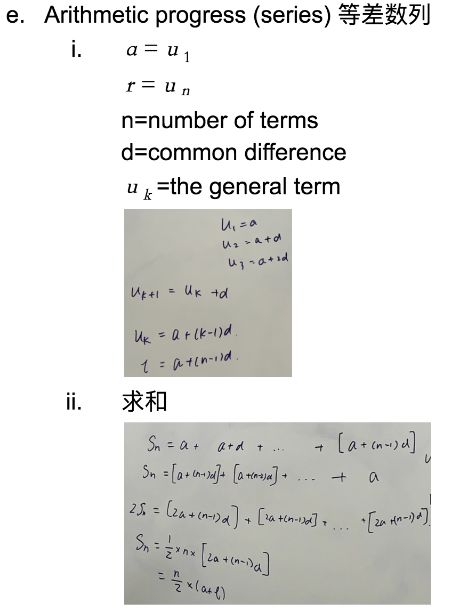 e. Arithmetic progress (series) 等差数列
i. a = u 1
r = u n
n=number of terms
d=common difference
u k =the general term
u₁ = a
u₂ = a+d
u₃ = a+2d
u_{k+1} = u_k + d
u_k = a+(k-1)d.
l = a+(n-1)d.
ii. 求和
Sn = a + a+d + ... + [a+(n-1)d]
Sn = [a+(n-1)d]+ [a+(n-2)d]+ ... + a
2Sn = [2a+(n-1)d] + [2a+(n-1)d]+ ... +[2a+(n-1)d]
Sn = 1/2 × n × [2a+(n-1)d]
= n/2 × (a+l)